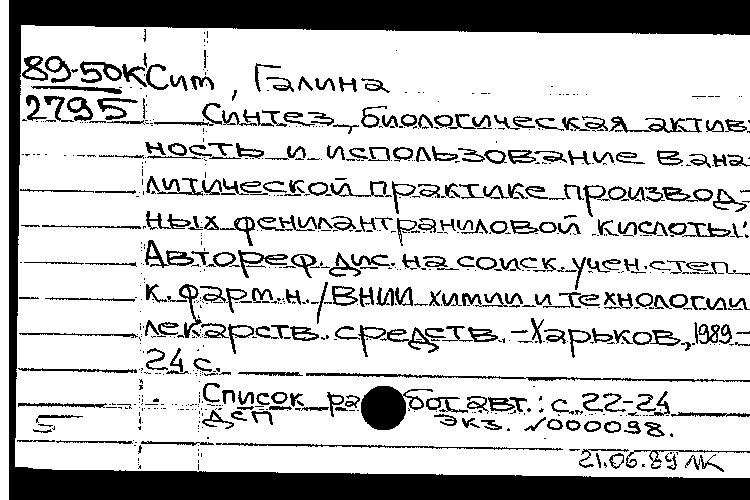 89-50К Сит, Галина
2795 Синтез, биологическая актив-
ность и использование в ана-
литической практике производ-
ных фенилантраниловой кислоты:
Автореф. дис. на соиск. учен. степ.
к. фарм. н. / ВНИИ химии и технологии
лекарств. средств. -Харьков, 1989-
24 с.
Список работ авт.: с. 22-24
5 деп экз. №000098.
21.06.89